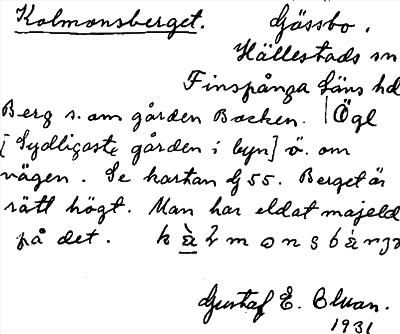 Kolmonsberget. Gässbo.
Hällestads sn
Finspånga läns hd
Berg s. om gården Backen. | Ögl
[Sydligaste gården i byn] ö. om
vägen. Se kartan G 55. Berget är
rätt högt. Man har eldat majeld
på det.
Gustaf E. Blvan.
1931